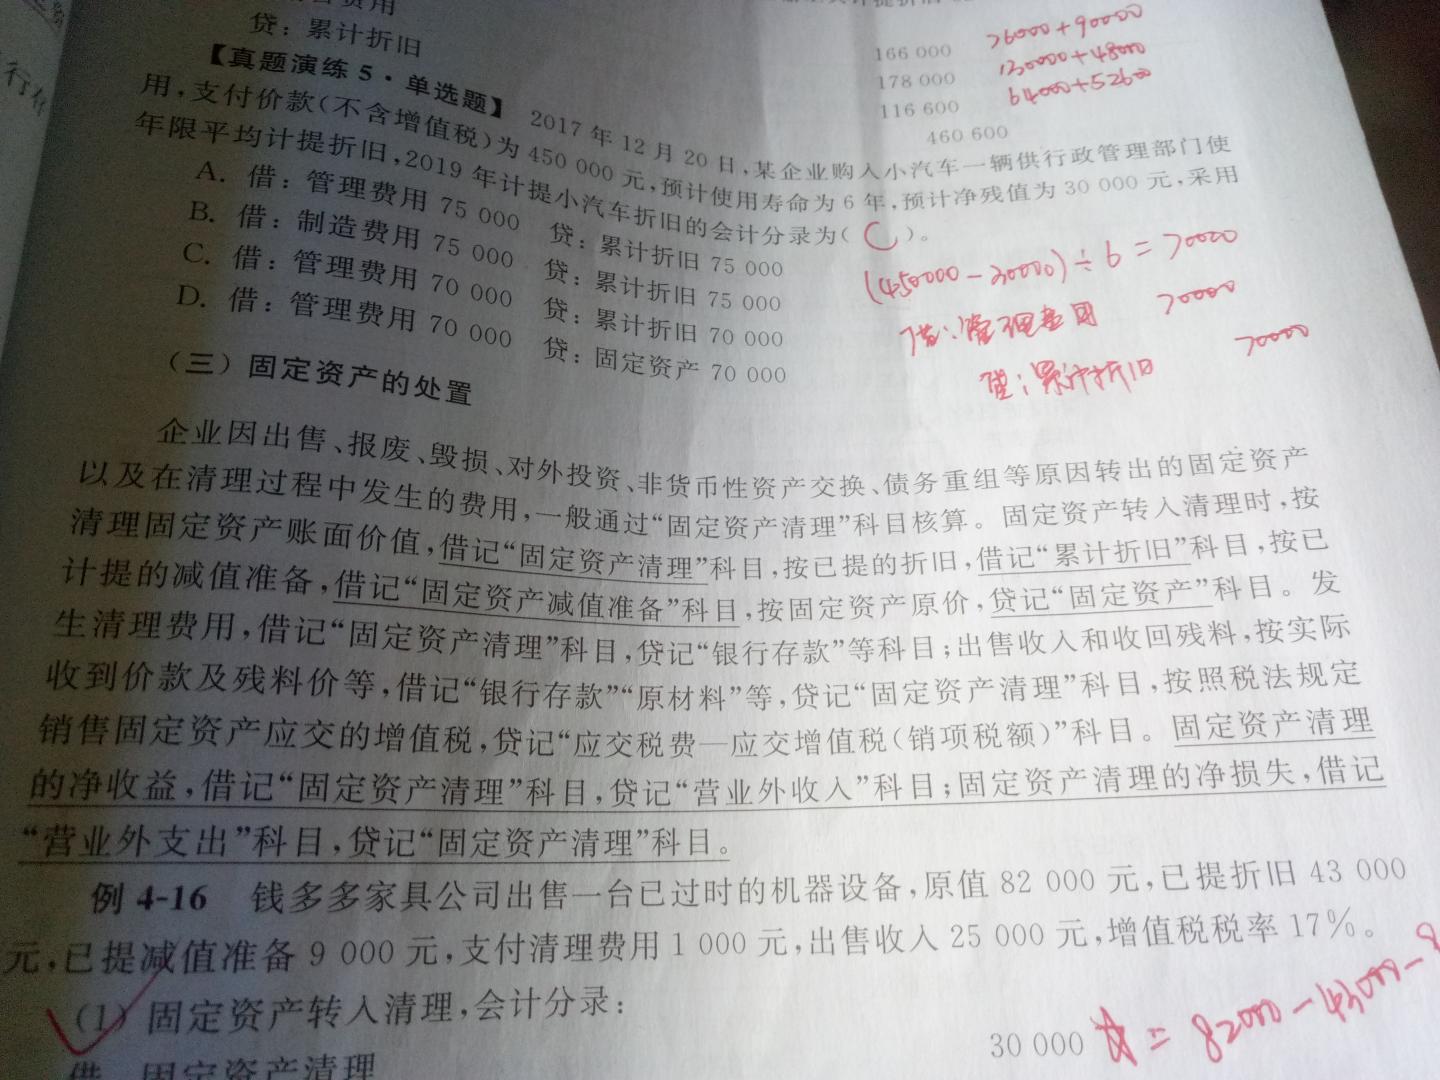 贷：累计折旧
166 000 76000+90000
178 000 130000+48000
116 600 64000+52600
460 600
【真题演练 5·单选题】 2017 年 12 月 20 日，某企业购入小汽车一辆供行政管理部门使
用，支付价款(不含增值税)为 450 000 元，预计使用寿命为 6 年，预计净残值为 30 000 元，采用
年限平均计提折旧，2019 年计提小汽车折旧的会计分录为( C )。
A. 借：管理费用 75 000 贷：累计折旧 75 000
B. 借：制造费用 75 000 贷：累计折旧 75 000
C. 借：管理费用 70 000 贷：累计折旧 70 000
D. 借：管理费用 70 000 贷：固定资产 70 000
(450000-30000)÷6=70000
借：管理费用 70000
贷：累计折旧 70000
（三）固定资产的处置
企业因出售、报废、毁损、对外投资、非货币性资产交换、债务重组等原因转出的固定资产
以及在清理过程中发生的费用，一般通过“固定资产清理”科目核算。固定资产转入清理时，按
清理固定资产账面价值，借记“固定资产清理”科目，按已提的折旧，借记“累计折旧”科目，按已
计提的减值准备，借记“固定资产减值准备”科目，按固定资产原价，贷记“固定资产”科目。发
生清理费用，借记“固定资产清理”科目，贷记“银行存款”等科目；出售收入和收回残料，按实际
收到价款及残料价等，借记“银行存款”“原材料”等，贷记“固定资产清理”科目，按照税法规定
销售固定资产应交的增值税，贷记“应交税费—应交增值税(销项税额)”科目。固定资产清理
的净收益，借记“固定资产清理”科目，贷记“营业外收入”科目；固定资产清理的净损失，借记
“营业外支出”科目，贷记“固定资产清理”科目。
例 4-16 钱多多家具公司出售一台已过时的机器设备，原值 82 000 元，已提折旧 43 000
元，已提减值准备 9 000 元，支付清理费用 1 000 元，出售收入 25 000 元，增值税税率 17%。
(1) 固定资产转入清理，会计分录：
借 固定资产清理 30 000 = 82000-43000-9